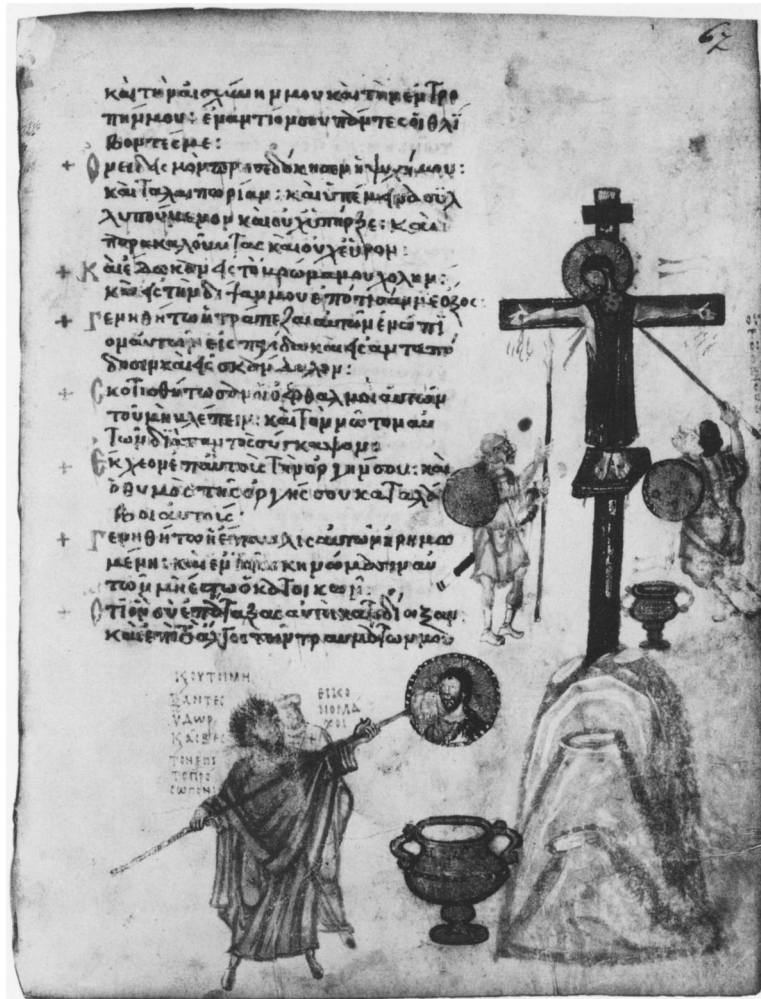 67
καὶ τὴν αἰσχύνην μου καὶ τὴν ἐντρο
πήν μου: ἐναντίον σου πάντες οἱ θλί
βοντές με:
+ Ὀνειδισμὸν προσεδόκησεν ἡ ψυχή μου:
καὶ ταλαιπωρίαν: καὶ ὑπέμεινα συλ
λυπούμενον καὶ οὐχ ὑπῆρξε: καὶ
παρακαλοῦντας καὶ οὐχ εὗρον:
+ Καὶ ἔδωκαν εἰς τὸ βρῶμά μου χολήν:
καὶ εἰς τὴν δίψαν μου ἐπότισάν με ὄξος:
+ Γενηθήτω ἡ τράπεζα αὐτῶν ἐνώπι
ον αὐτῶν εἰς παγίδα καὶ εἰς ἀνταπό
δοσιν καὶ εἰς σκάνδαλον:
+ Σκοτισθήτωσαν οἱ ὀφθαλμοὶ αὐτῶν
τοῦ μὴ βλέπειν: καὶ τὸν νῶτον αὐ
τῶν διὰ παντὸς σύγκαψον:
+ Ἔκχεον ἐπ αὐτοὺς τὴν ὀργήν σου: καὶ
ὁ θυμὸς τῆς ὀργῆς σου καταλά
βοι αὐτούς:
+ Γενηθήτω ἡ ἔπαυλις αὐτῶν ἠρημω
μένη: καὶ ἐν τοῖς σκηνώμασιν αὐ
τῶν μὴ ἔστω ὁ κατοικῶν:
+ Ὅτι ὃν σὺ ἐπάταξας αὐτοὶ κατεδίωξαν:
καὶ ἐπὶ τὸ ἄλγος τῶν τραυμάτων μου
ΥΔΩΡ
ΕΙΚΟ
ΝΟΜΑ
ΧΟΙ